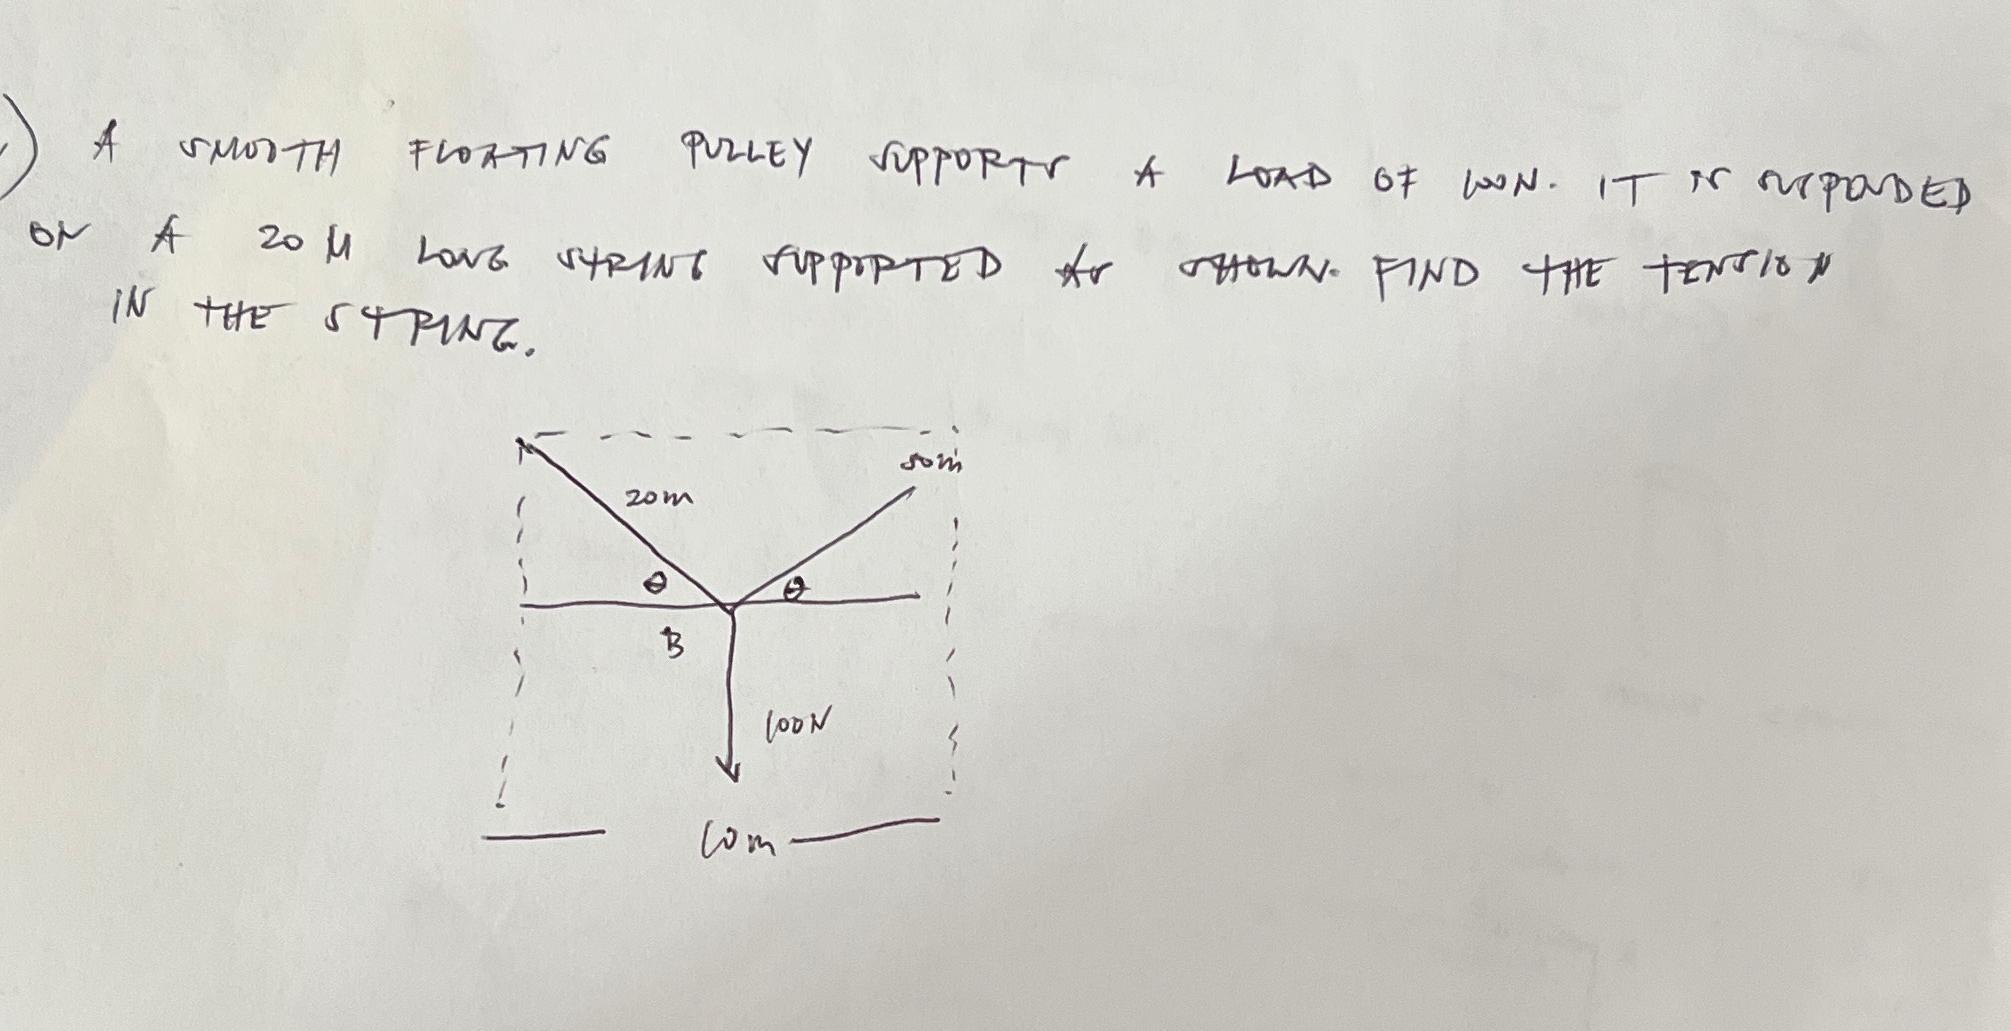 A SMOOTH FLOATING PULLEY SUPPORTS A LOAD OF 100N. IT IS SUSPENDED
ON A 20 M LONG STRING SUPPORTED AS SHOWN. FIND THE TENSION
IN THE STRING.
20m
θ
θ
B
100N
10m